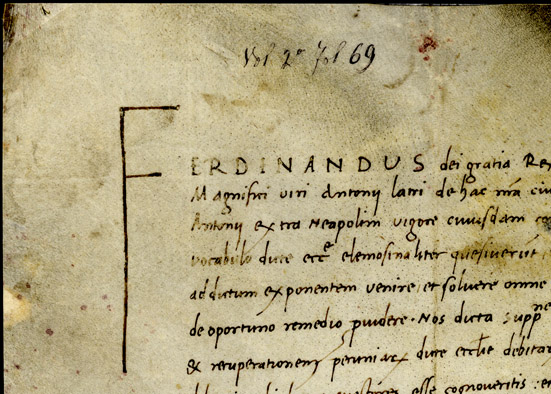 Vol 2º fol 69
FERDINANDUS dei gratia Re
Magnifici viri Antonij latri de hac nrã ciu
Antonij extra neapolim vigore cuiusdam co
vocabulo dicte eccᵉ elemosinaliter quesiverũt
ad dictum exponentem venire et solvere omne
de oportuno remedio pvidere. Nos dicta supp
& recuperationem peccuniarᷓ dicte ecclie debitar
esse cognoveritis